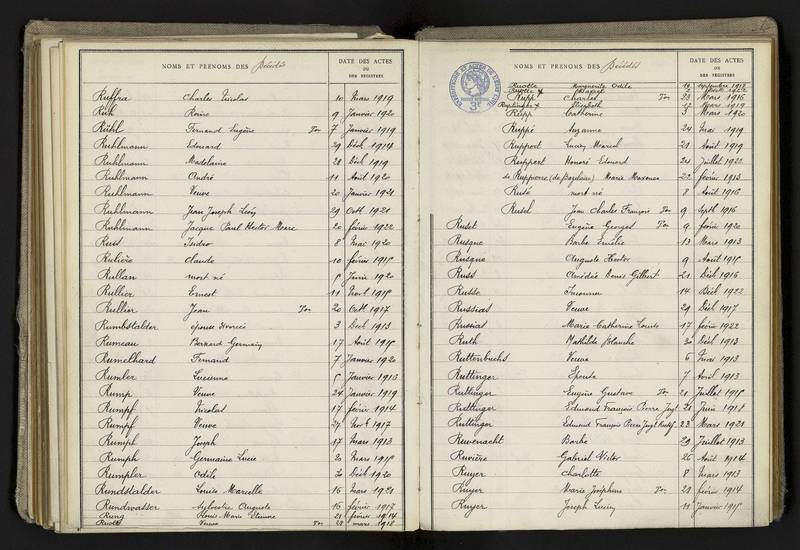 NOMS ET PRENOMS DES Décédés
DATE DES ACTES
OU
DES REGISTRES
Ruffra Charles Nicolas 10 Mars 1919
Ruh Rosine 9 Janvier 1920
Rühl Fernand Eugène Ton 7 Janvier 1919
Ruhlmann Edouard 29 Déch 1914
Ruhlmann Madelaine 28 Déch 1919
Ruhlmann André 11 Août 1920
Ruhlmann Veuve 20 Janvier 1921
Ruhlmann Jean Joseph Léon 29 Octb 1921
Ruhlmann Jacque Paul Hector Marc 20 février 1922
Isidor 8 Mai 1920
Rulière claude 10 février 1915
Rullan mort né 1920
Rullier Ernest 11
Rullier Jean Ton 20 Octb 1917
Rumbstalder épouse divorcée 3 Déch 1913
Rumeau Bernard Germain 17 Août 1915
Rumelhard Fernand 7 Janvier 1920
Rumler Lucienne Janvier 1916
Rump Veuve 24 Janvier 1919
Rumpf Nicolas 17 février 1914
Rumpf Veuve 27 1917
Rumpf Joseph 17 Mars 1913
Rumph Germaine Lucie 20 Mars 1915
Rumpler Odile 30 Déch 1920
Rundstalder Louise Marcelle 16 Mars 1921
Rundwasser Sylvestre Auguste 16 février 1917
Rung Marie Etienne 21 février 1914
Veuve Ton 28 mars 1918
NOMS ET PRENOMS DES Décédés
DATE DES ACTES
OU
DES REGISTRES
Marguerite Odile 19 septembre 1918
1922
Rupp Charles Ton 23 Mars 1916
Elisabeth 12 Mars 1919
Rupp Catherine 3 Mars 1920
Ruppé Suzanne 24 Mai 1919
Ruppert Lucien Marcel 21 Août 1919
Ruppert Honoré Edouard 24 Juillet 1922
de Ruppierre (de Bazelaire) Marie Maxence 22 février 1913
Rusé mort né 8 Août 1916
Rusel Jean Charles François Ton 9 Septb 1916
Ruset Eugène Georges Ton 9 février 1920
Rusque Barbe Emélie 13 Mars 1913
Rusque Auguste Hector 9 Août 1915
Russ Amédée Denis Gilbert 21 Déch 1916
Russo Inconnu 14 Déch 1922
Russias Veuve 29 Déch 1917
Russias Marie Catherine Louise 17 février 1922
Ruth Mathilde Blanche 30 Déch 1913
Ruttenbuchs Veuve 6 Mars 1913
Ruttinger Epouse 7 Avril 1913
Ruttinger Eugène Gustave Ton 21 Juillet 1915
Ruttinger Edmond François Pierre 21 Juin 1918
Ruttinger Edmond François Pierre 23 Mars 1921
Ruwenacht Barbe 29 Juillet 1913
Ruvière Gabriel Victor 26 Août 1914
Ruyer Charlotte 8 Mars 1913
Ruyer Marie Joséphine Ton 28 février 1914
Ruyer Joseph Lucien 11 Janvier 1915